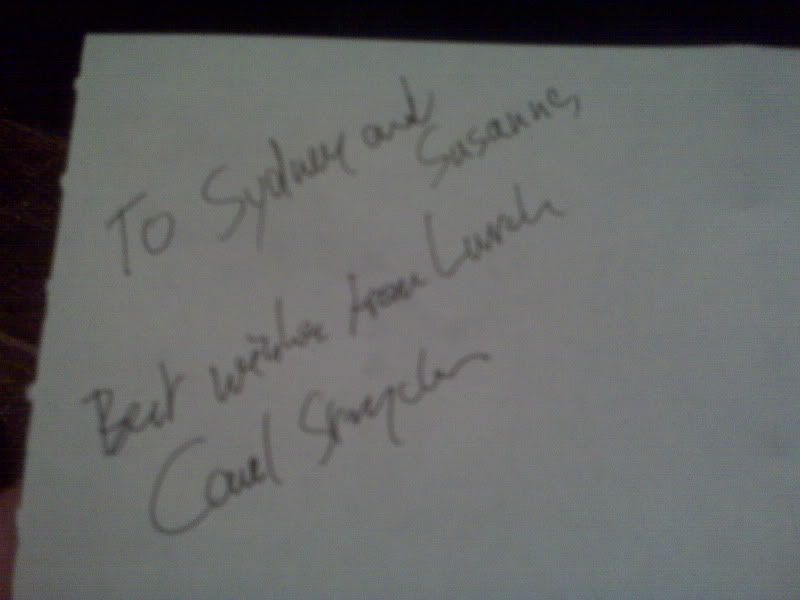 To Sydney and
Susanne
Best wishes from Lurch
Carel Struycken